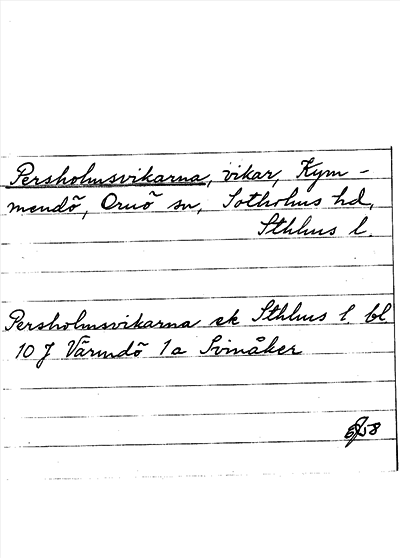 Persholmsvikarna, vikar, Kym-
mendö, Ornö sn, Sotholms hd,
Sthlms l.
Persholmsvikarna ek Sthlms l. bl
10 J Värmdö 1a Svinåker